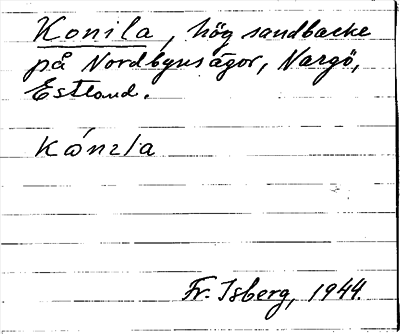 Konila, hög sandbacke
på Nordbyns ägor, Nargö,
Estland.
Fr. Isberg, 1944.